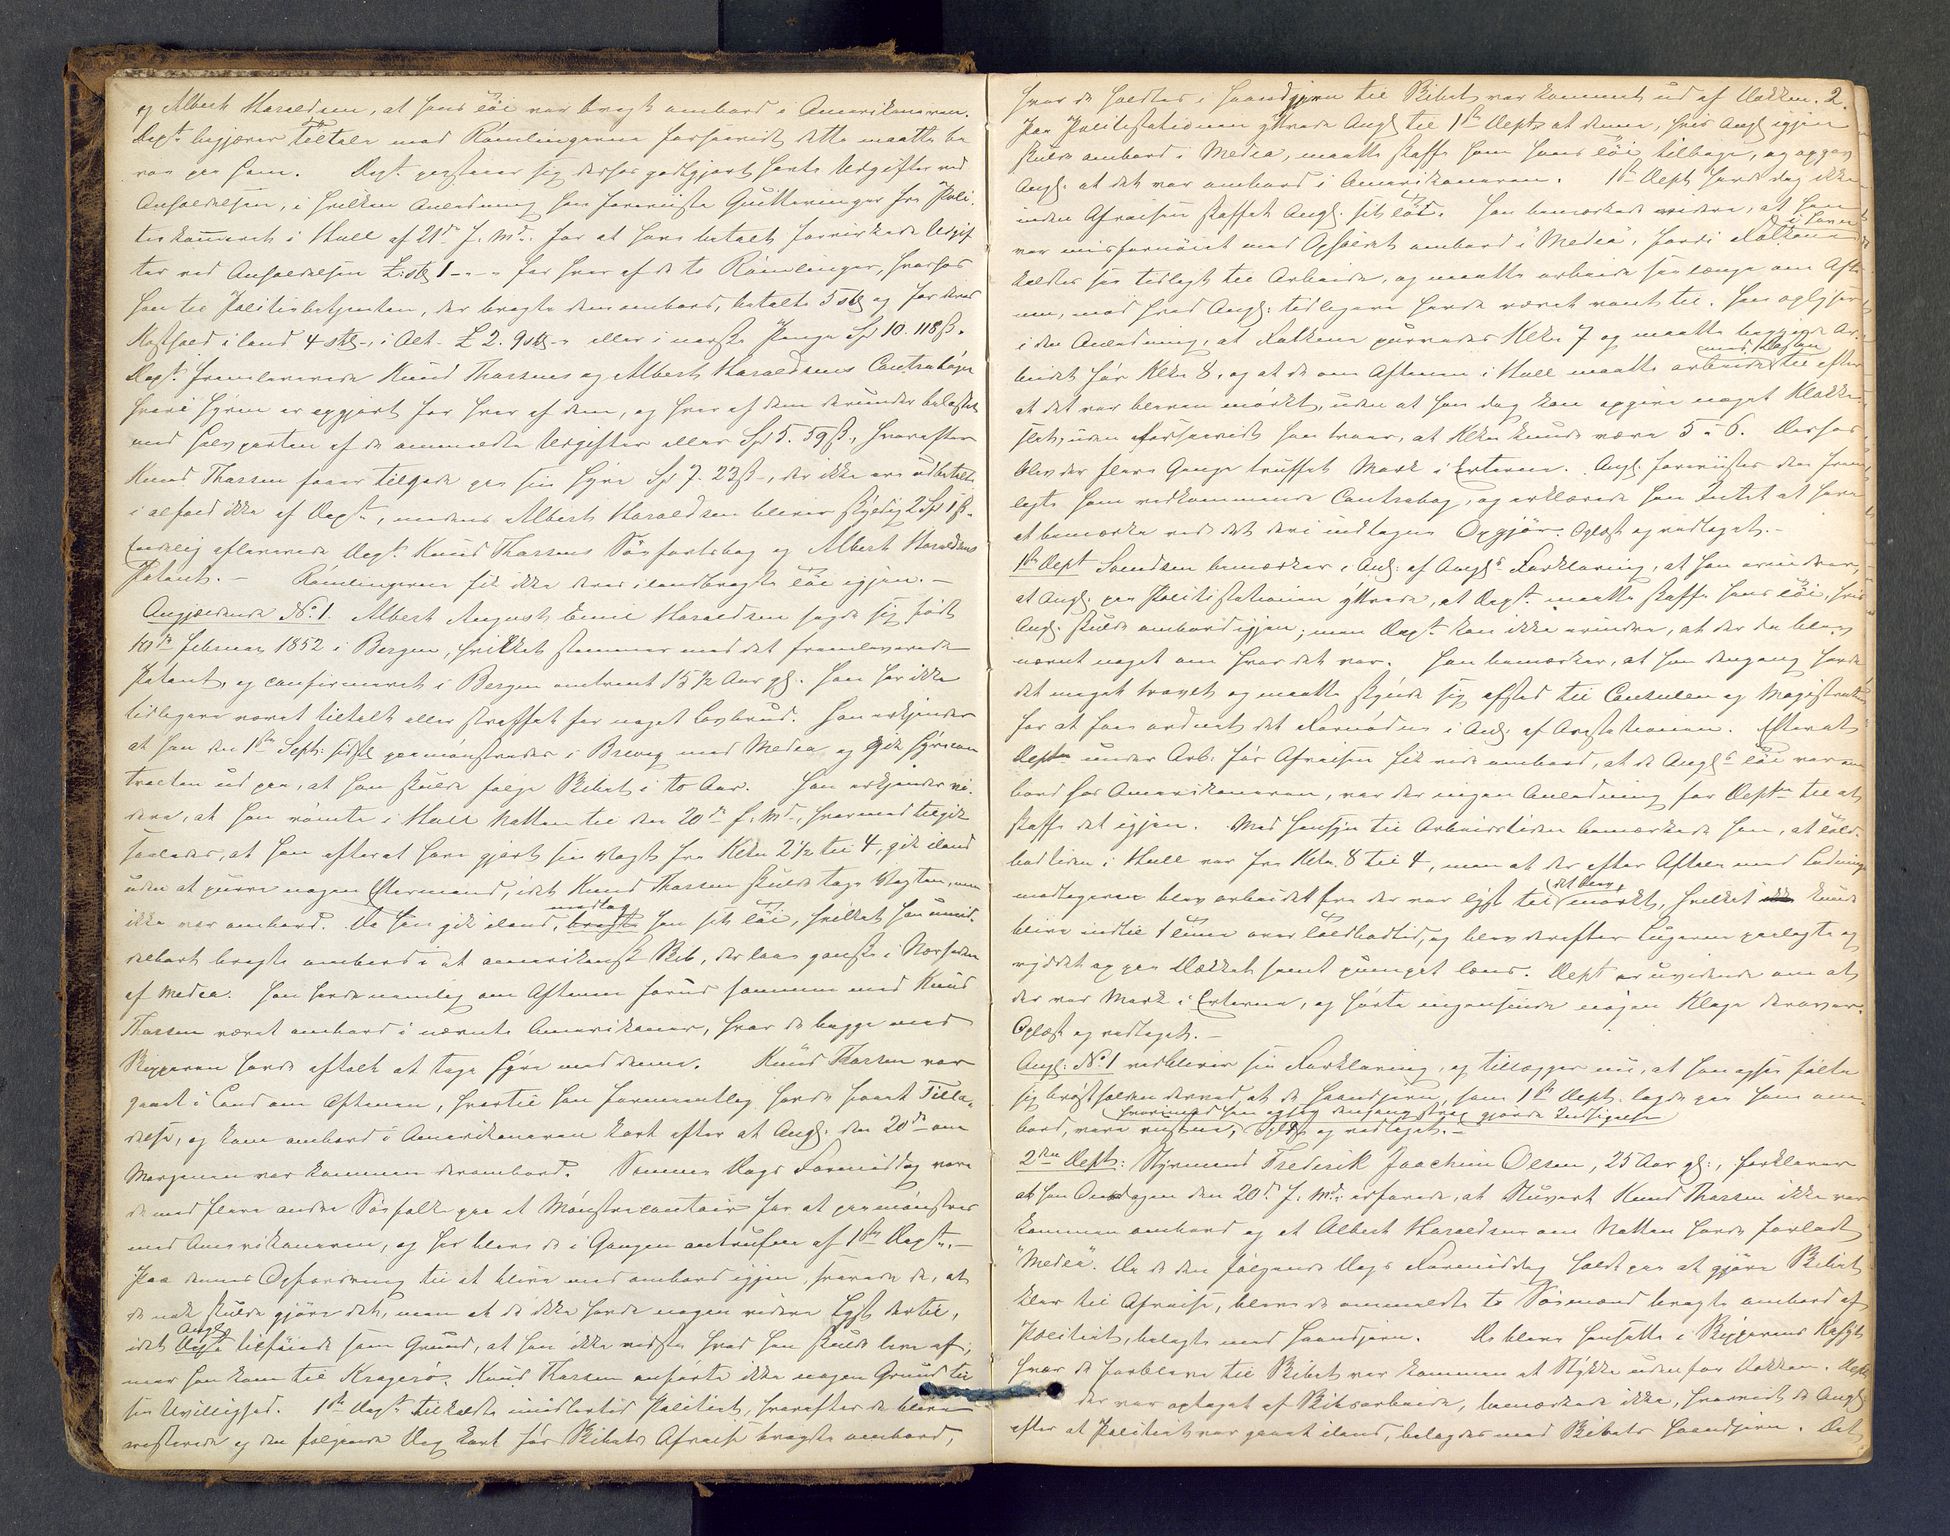 og Albert Haraldsen, at hans Töi var bragt ombord i Amerikaneren.
Dept. begjærer Tiltale mod Römlingerne forsaavidt dette maatte be
roe paa ham. Dept. paastaar sig derhos godtgjort havte Udgifter ved
Anholdelsen, i hvilken Anledning han foreviste Quitteringer fra Poli
tikammeret i Hull af 21de f. Md. for at have betalt forvirkede Udgif
ter ved Anholdelsen £ stg 1 - " - " for hver af de to Römlinger, hvorhos
han til Politibetjenten, der bragte dem ombord, betalte 5 stg og for deres
Kosthold i land 4 stg, i Alt £ 2. 9 stg - " eller i norske Penge Spd 10. 118 ß.
Dept. fremleverede Knud Thorsens og Albert Haraldsens Contraböger
hvori Hyren er opgjort for hver af dem, og hver af dem derunder belastet
med Halvparten af de ommeldte Udgifter eller Spd 5. 59 ß, hvorefter
Knud Thorsen faaer tilgode paa sin Hyre Spd 7. 23 ß, der ikke ere udbetalt
i alfald ikke af Dept., medens Albert Haraldsen bliver skyldig 2 Spd 1 ß.
Endelig afleverede Dept. Knud Thorsens Söfartsbog og Albert Haraldsens
Patent. - Römlingerne fik ikke deres ilandbragte Töi igjen. -
Angjældende No. 1. Albert August Emil Haraldsen sagde sig född
10de Februar 1852 i Bergen, hvilket stemmer med det fremleverede
Patent, og confirmeret i Bergen omtrent 15 1/2 Aar gl. Han har ikke
tidligere været tiltalt eller straffet for noget Lovbrud. Han erkjender
at han den 1ste Septr. sidstl. paamönstredes i Brevig med Medea, og gik Hyrecon
tracten ud paa, at han skulde følge Skibet i to Aar. Han erkjender vi-
dere, at han römte i Hull Natten til den 20de f. Md., hvormed tilgik
saaledes, at han efterat have gjort sin Vagt fra Kl. 2 1/2 til 4, gik iland
uden at purre nogen Eftermand, idet Knud Thorsen skulde tage Vagten, men
ikke var ombord. Da han gik iland, bragte medtog han sit Töi, hvilket han umid-
delbart bragte ombord i et amerikansk Skib, der laae ganske i Nærheden
af Medea. Han havde nemlig om Aftenen forud sammen med Knud
Thorsen været ombord i nævnte Amerikaner, hvor de begge med
Skipperen havde aftalt at tage Hyre med denne. Knud Thorsen var
gaaet i Land om Aftenen, hvortil han formentlig havde faaet Tilla-
delse, og kom ombord i Amerikaneren kort efter at Angj. den 20de om
Morgenen var kommen derombord. Samme Dags Formiddag vare
de med flere andre Söfolk paa et Mönstrecontoir for at paamönstres
med Amerikaneren, og her bleve de i Gangen antrufne af 1ste Dept. -
Paa dennes Opfordring til at blive med ombord igjen, svarede de, at
de nok skulde gjöre det, men at de ikke havde nogen videre Lyst dertil,
idet Dept Angj. tilföiede som Grund, at han ikke vidste hvad han skulde leve af,
naar han kom til Kragerö. Knud Thorsen anförte ikke nogen Grund til
sin Uvillighed. 1ste Dept. tilkaldte imidlertid Politiet, hvorefter de bleve
arresterede og den fölgende Dag kort för Skibets Afreise bragte ombord,
2.
hvor de holdtes i Haandjern til Skibet var kommet ud af Dokken.
Paa Politistationen yttrede Angj. til 1ste Dept. at denne, hvis Angj. igjen
skulde ombord i Medea, maatte skaffe ham hans Töi tilbage, og opgav
Angj. at det var ombord i Amerikaneren. 1ste Dept. havde dog ikke
inden Afreisen skaffet Angj. sit Töi. Han bemærkede videre, at han
var misfornöiet med Opholdet ombord i "Medea", fordi Folkene i Havn
kaldtes saa tidligt til Arbeide, og maatte arbeide saa længe om Afte
nen, mod hvad Angj. tidligere havde været vant til. Han oplyser
i den Anledning, at Folkene purredes Kl. 7 og maatte begynde Ar-
beidet för Kl. 8, og at de om Aftenen i Hull maatte arbeide med Lasten til efter
at det var bleven mörkt, uden at han dog kan opgive noget Klokke-
slet, uden forsaavidt han troer, at Kl. kunde være 5 à 6. Derhos
blev der flere Gange truffet Mark i Erterne. Angj. forevistes den frem
lagte ham vedkommende Contrabog, og erklærede han Intet at have
at bemærke ved det deri indtagne Opgjör. Oplæst og vedtaget. -
1ste Dept Svendsen bemærker i Anl. af Angj.s Forklaring, at han erindrer,
at Angj. paa Politistationen yttrede, at Dept. maatte skaffe hans Töi, hvis
Angj. skulde ombord igjen; men Dept. kan ikke erindre, at der da blev
nævnt noget om hvor det var. Han bemærker, at han dengang havde
det meget travelt og maatte skynde sig afsted til Consulen og Magistraten
for at faae ordnet det Fornödne i Anl. af Arrestationen. Efterat
Dept. under Arb. för Afreisen fik vide ombord, at de Angj.s Töi var om
bord hos Amerikaneren, var der ingen Anledning for Dept. til at
skaffe det igjen. Med Hensyn til Arbeidstiden bemærkede han, at Told-
bodtiden i Hull var fra Kl. 8 til 4, men at der efter Aftale med Ladnings
modtageren blev arbeidet fra der var lyst til det blev mörkt, hvilket ikke kunde
blive indtil 1 Time over Toldbodtid, og blev derefter Lugerne paalagte og
ryddet op paa Dækket samt pumpet læns. Dept. er uvidende om at
der var Mark i Erterne, og hörte ingensinde nogen Klage derover.
Oplæst og vedtaget. -
Angj. No. 1 vedbliver sin Forklaring, og tillægger nu, at han ogsaa fölte
sig bröstholden derved, at de Haandjern, som 1ste Dept. lagde paa ham om-
bord, vare rustne, hvorimod han ogsaa dengang strax gjorde Indsigelse Oplæst og vedtaget. -
2den Dept: Styrmand Frederik Joachim Olsen, 25 Aar gl., forklarer
at han Onsdagen den 20de f. Md. erfarede, at Stuvert Knud Thorsen ikke var
kommen ombord og at Albert Haraldsen om Natten havde forladt
"Medea". Da de den fölgende Dags Formiddag holdt paa at gjöre Skibet
klar til Afreise, bleve de ommeldte to Sömænd bragte ombord af
Politiet, belagte med Haandjern. De bleve hensatte i Skipperens Kahyt
hvor de forbleve til Skibet var kommen et Stykke udenfor Dokken. Dept.
der var optaget af Skibsarbeide, bemærkede ikke, hvorvidt de Angj.
efter at Politiet var gaaet iland, belagdes med Skibets Haandjern. Det